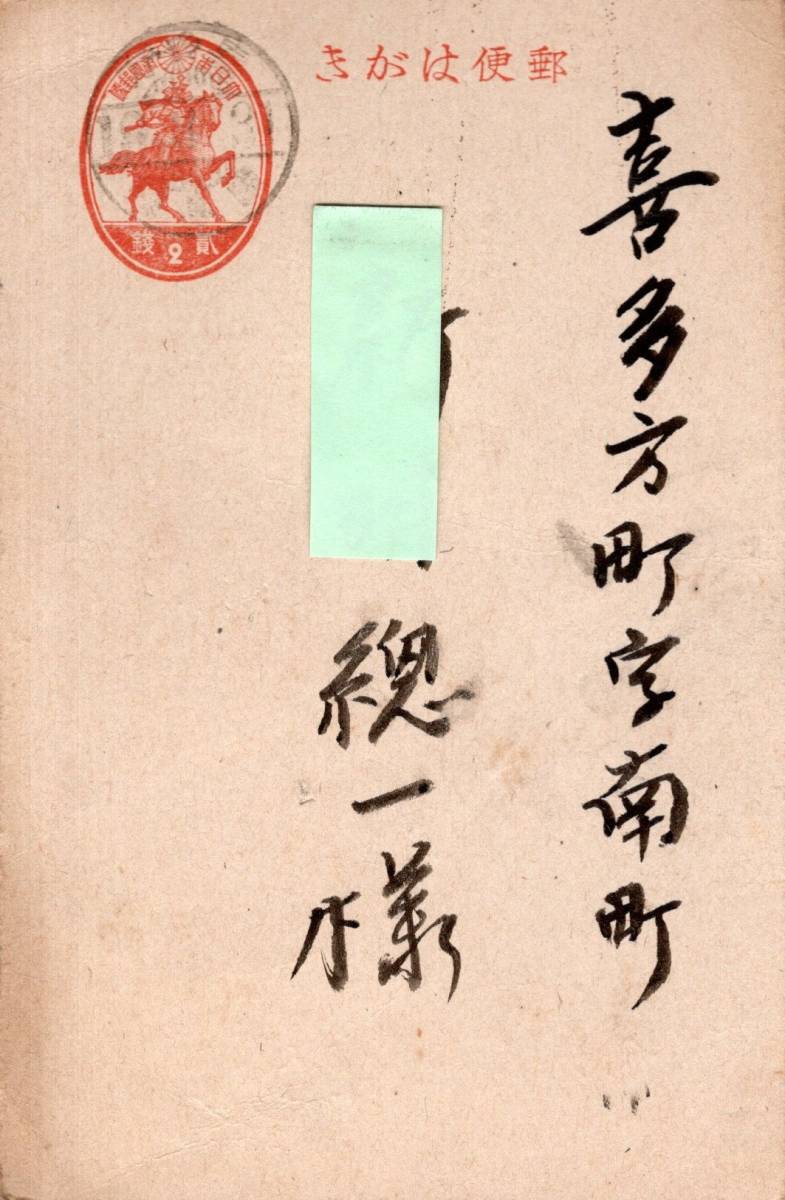 郵便はがき
大日本帝國郵便
貳錢
2
喜多方町字南町
總一様